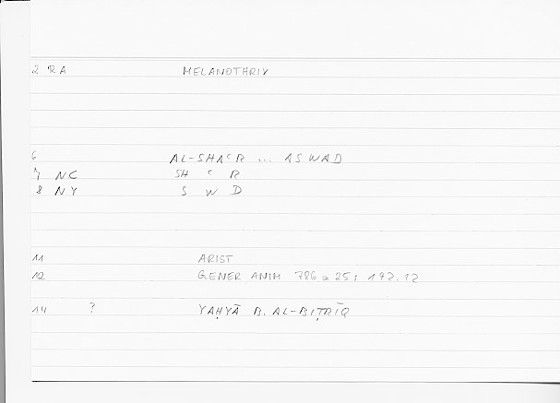 2 RA MELANOTHRIX
6 AL-SHAʿR ... ASWAD
7 NC SH ʿ R
8 NY S W D
11 ARIST
12 GENER ANIM 786 a 25; 192.12
14 ? YAḤYĀ B. AL-BIṬRĪQ